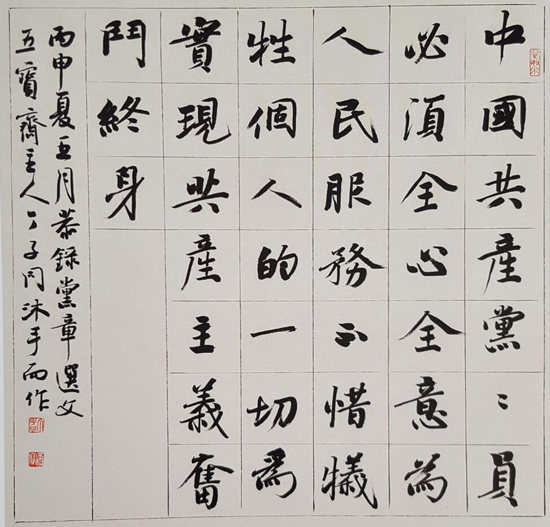 中國共產黨〻員
必須全心全意為
人民服務不惜犧
牲個人的一切為
實現共產主義奮
鬥終身
丙申夏五月恭錄黨章選文
五寶齋主人子閂沐手而作